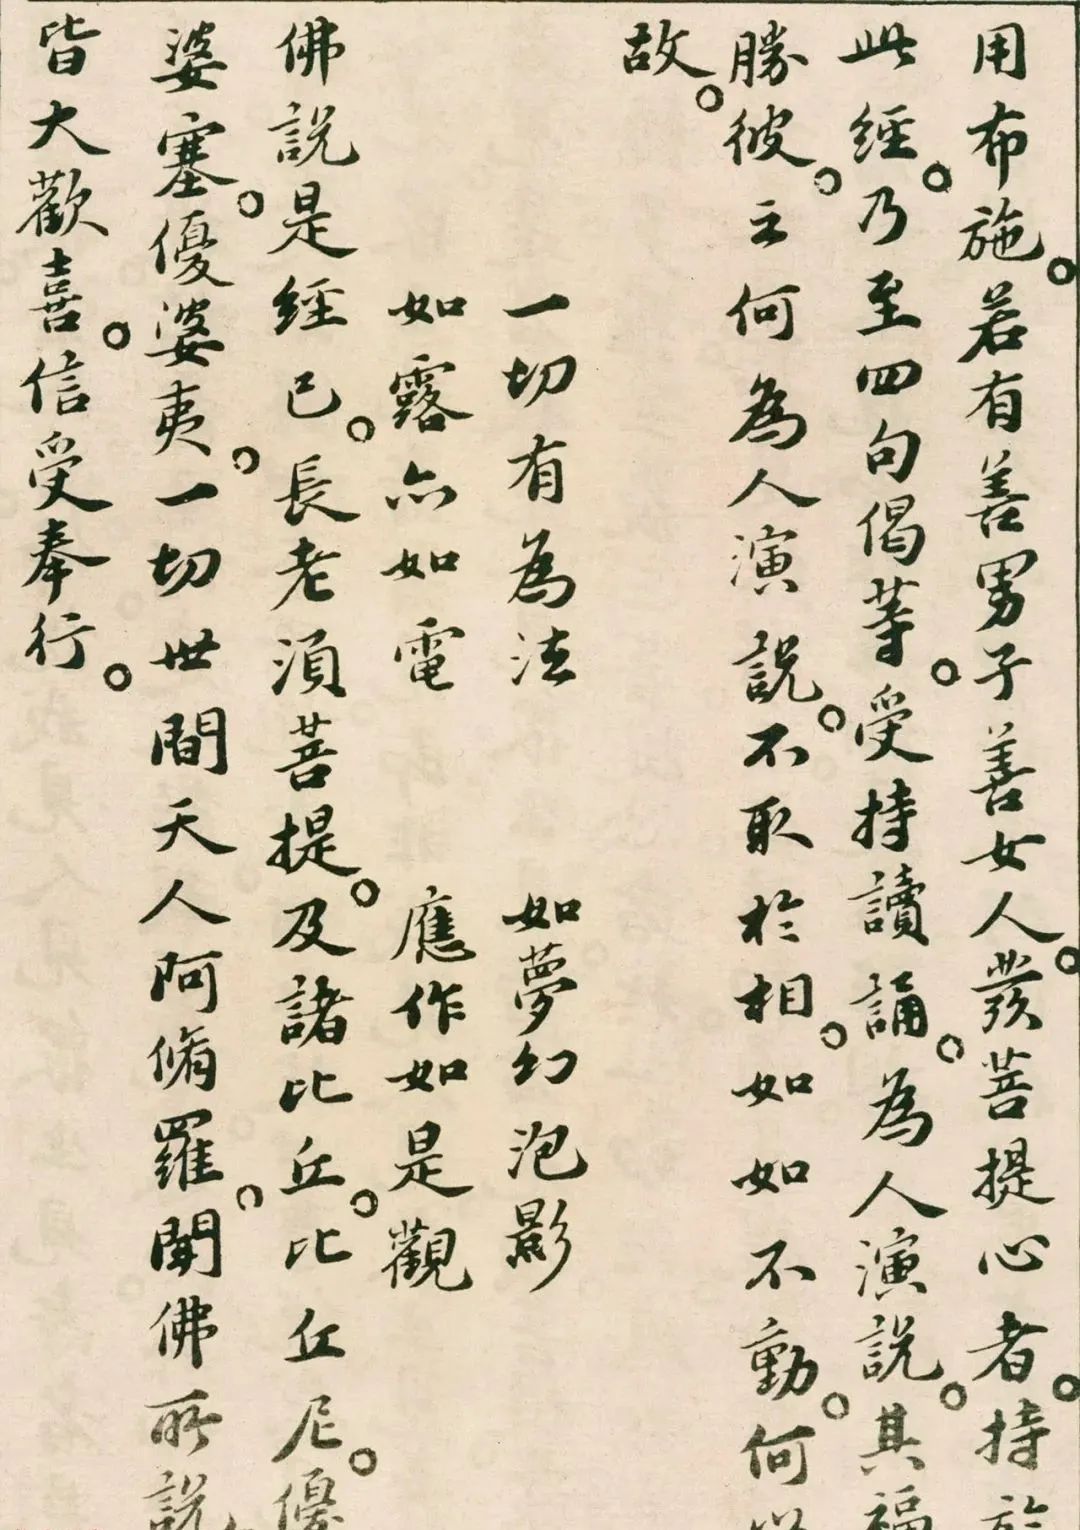 用布施。若有善男子善女人。發菩提心者。持於
此經。乃至四句偈等。受持讀誦。為人演說。其福
勝彼。云何為人演說。不取於相。如如不動。何以
故。
一切有為法 如夢幻泡影
如露亦如電 應作如是觀
佛說是經已。長老須菩提。及諸比丘。比丘尼。優
婆塞。優婆夷。一切世間天人阿脩羅。聞佛所說
皆大歡喜。信受奉行。